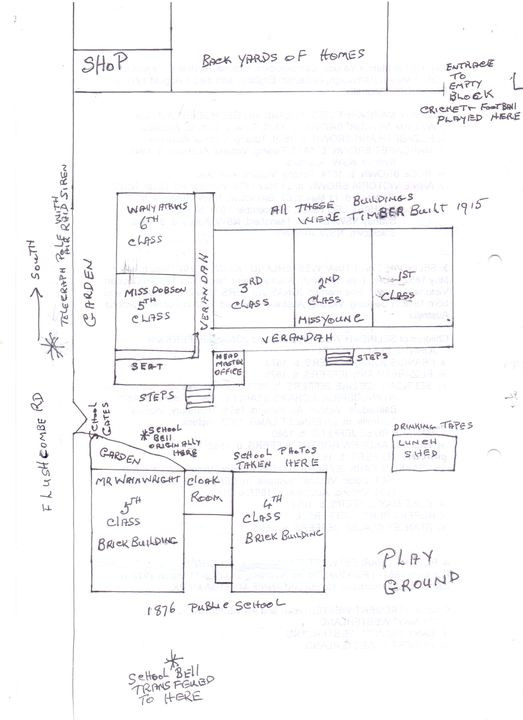 SHOP
BACK YARDS OF HOMES
ENTRACE
TO
EMPTY
BLOCK
CRICKET + FOOTBALL
PLAYED HERE
L
TELEGRAPH POLE WITH
AIR RAID SIREN
SOUTH
GARDEN
WALLY ATKINS
6TH
CLASS
MISS DOBSON
5TH
CLASS
VERANDAH
ALL THESE BUILDINGS
WERE TIMBER BUILT 1915
3RD
CLASS
2ND
CLASS
MISS YOUNG
1ST
CLASS
VERANDAH
SEAT
HEAD
MASTER
OFFICE
STEPS
STEPS
FLUSHCOMBE RD
SCHOOL
GATES
SCHOOL
BELL
ORIGINALLY
HERE
GARDEN
SCHOOL PHOTOS
TAKEN HERE
DRINKING TAPES
LUNCH
SHED
MR WAINWRIGHT
5TH
CLASS
BRICK BUILDING
CLOAK
ROOM
4TH
CLASS
BRICK BUILDING
PLAY
GROUND
1876 PUBLIC SCHOOL
SCHOOL BELL
TRANSFERED
TO HERE